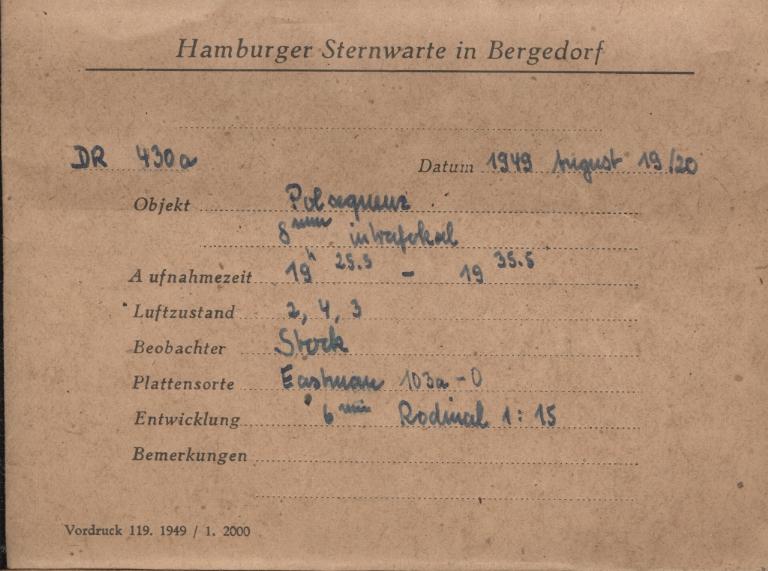 Hamburger Sternwarte in Bergedorf
DR 430a Datum 1949 August 19/20
Objekt Polsequenz
8 mm intrafokal
Aufnahmezeit 19h 25.5 - 19 35.5
Luftzustand 2, 4, 3
Beobachter Stock
Plattensorte Eastman 103a-O
Entwicklung 6 min Rodinal 1:15
Bemerkungen
Vordruck 119. 1949 / 1. 2000